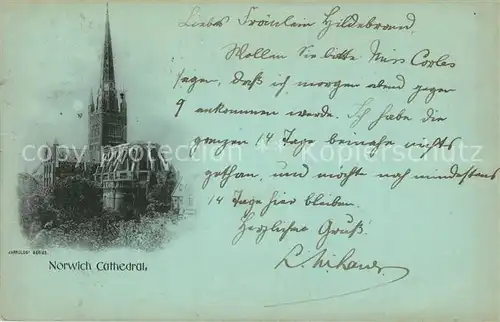 Liebes Fräulein Hildebrand,
Wollen Sie bitte Miss Corles
sagen, daß ich morgen abend gegen
9 ankommen werde. Ich habe die
ganzen 14 Tage beinahe nichts
gethan, und möchte noch mindestens
14 Tage hier bleiben.
Herzlichen Gruß!
JARROLDS' SERIES.
Norwich Cathedral.
© www.oldthing.de
© www.oldthing.de